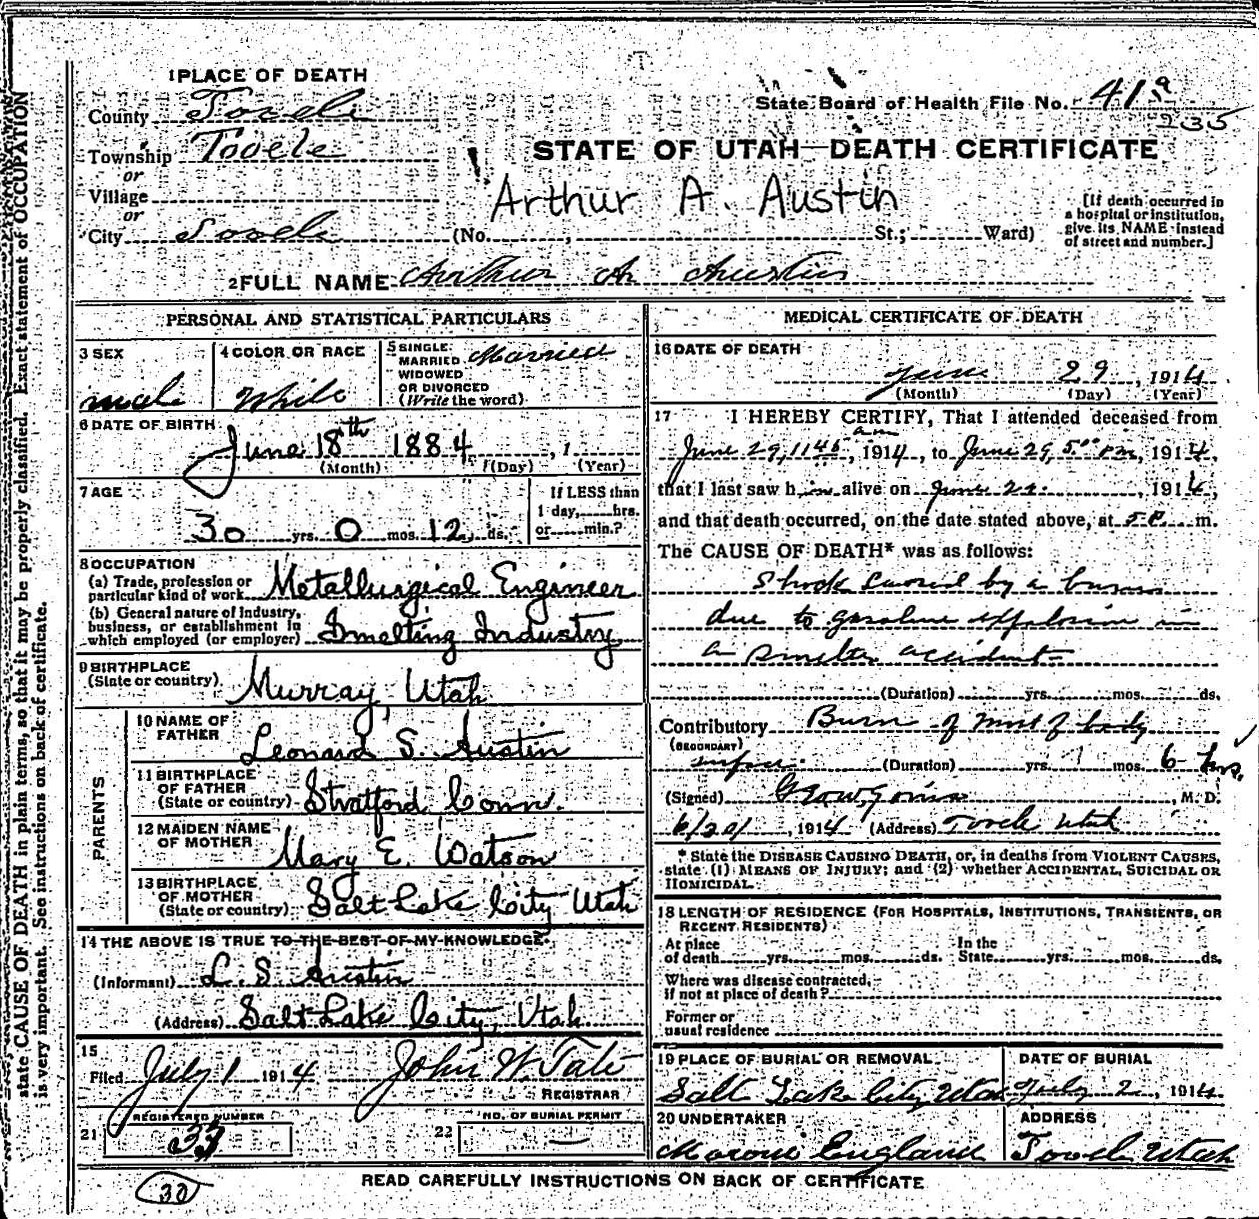 state CAUSE OF DEATH in plain terms, so that it may be properly classified. Exact statement of OCCUPATION
is very important. See instructions on back of certificate.
1 PLACE OF DEATH
County Tooele
Township Tooele
or
Village
or
City Tooele (No. , St.; Ward)
State Board of Health File No. 419
235
STATE OF UTAH—DEATH CERTIFICATE
Arthur A. Austin
[If death occurred in
a hospital or institution,
give its NAME instead
of street and number.]
2 FULL NAME Arthur A Austin
PERSONAL AND STATISTICAL PARTICULARS
3 SEX
male
4 COLOR OR RACE
White
5 SINGLE
MARRIED
WIDOWED
OR DIVORCED
(Write the word)
Married
6 DATE OF BIRTH
June 18th 1884 , 1
(Month) (Day) (Year)
7 AGE
30 yrs. 0 mos. 12 ds.
If LESS than
1 day, hrs.
or min.?
8 OCCUPATION
(a) Trade, profession or
particular kind of work Metallurgical Engineer
(b) General nature of Industry,
business, or establishment in
which employed (or employer) Smelting Industry
9 BIRTHPLACE
(State or country) Murray, Utah
PARENTS
10 NAME OF
FATHER Leonard S. Austin
11 BIRTHPLACE
OF FATHER
(State or country) Stratford Conn.
12 MAIDEN NAME
OF MOTHER Mary E. Watson
13 BIRTHPLACE
OF MOTHER
(State or country) Salt Lake City Utah
14 THE ABOVE IS TRUE TO THE BEST OF MY KNOWLEDGE.
(Informant) L. S Austin
(Address) Salt Lake City, Utah
15
Filed July 1 1914 John W. Tate
REGISTRAR
REGISTERED NUMBER
21
NO. OF BURIAL PERMIT
22 —
MEDICAL CERTIFICATE OF DEATH
16 DATE OF DEATH
June 29, 1914
(Month) (Day) (Year)
17 I HEREBY CERTIFY, That I attended deceased from
June 29, 1145 am, 1914, to June 29, 5 00 pm, 1914,
that I last saw him alive on June 29, 1914,
and that death occurred, on the date stated above, at 5 P m.
The CAUSE OF DEATH* was as follows:
Shock caused by a burn
due to gasoline explosion in
a smelter accident
(Duration) yrs. mos. ds.
Contributory Burn of most of body
(SECONDARY)
surface (Duration) yrs. mos. 6 hrs.
(Signed) , M. D.
, 1914 (Address) Tooele Utah
* State the DISEASE CAUSING DEATH, or, in deaths from VIOLENT CAUSES,
state (1) MEANS OF INJURY; and (2) whether ACCIDENTAL, SUICIDAL OR
HOMICIDAL.
18 LENGTH OF RESIDENCE (FOR HOSPITALS, INSTITUTIONS, TRANSIENTS, OR
RECENT RESIDENTS)
At place of death yrs. mos. ds. In the State yrs. mos. ds.
Where was disease contracted,
if not at place of death?
Former or
usual residence
19 PLACE OF BURIAL OR REMOVAL
Salt Lake City Utah
DATE OF BURIAL
July 2, 1914
20 UNDERTAKER
Moroni England
ADDRESS
Tooele Utah
READ CAREFULLY INSTRUCTIONS ON BACK OF CERTIFICATE